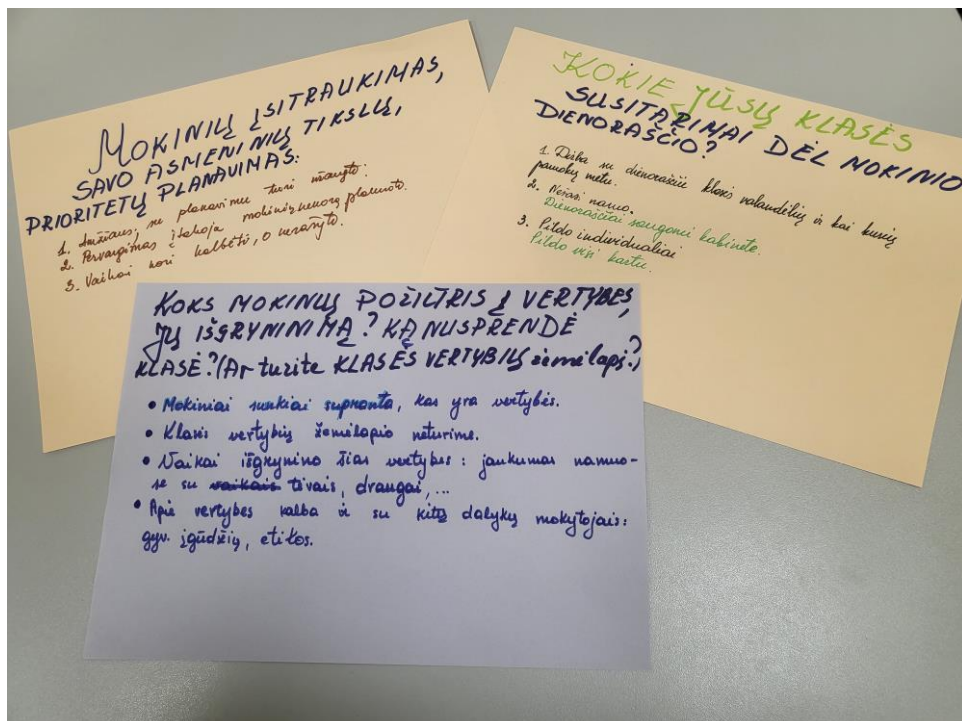 MOKINIŲ ĮSITRAUKIMAS,
SAVO ASMENINIŲ TIKSLŲ,
PRIORITETŲ PLANAVIMAS:
1. Amžiaus, su planavimu turi
2. Pervargimas įtakoja mokinių nenorą planuoti.
3. Vaikai nori kalbėti, o nerašyti.
KOKIE JŪSŲ KLASĖS
SUSITARIMAI DĖL MOKINIO
DIENORAŠČIO?
1. Dirba su dienoraščiu klasės valandėlių ir kai kurių
pamokų metu.
2. Nešasi namo.
Dienoraščiai saugomi kabinete.
3. Pildo individualiai
Pildo visi kartu.
KOKS MOKINIŲ POŽIŪRIS Į VERTYBES,
JŲ IŠGRYNINIMĄ? KĄ NUSPRENDĖ
KLASĖ? (Ar turite KLASĖS VERTYBIŲ žemėlapį?)
• Mokiniai sunkiai supranta, kas yra vertybės.
• Klasės vertybių žemėlapio neturime.
• Vaikai išgrynino šias vertybes: jaukumas namuo-
se su vaikais tėvais, draugai, ...
• Apie vertybes kalba ir su kitų dalykų mokytojais:
gyv. įgūdžių, etikos.